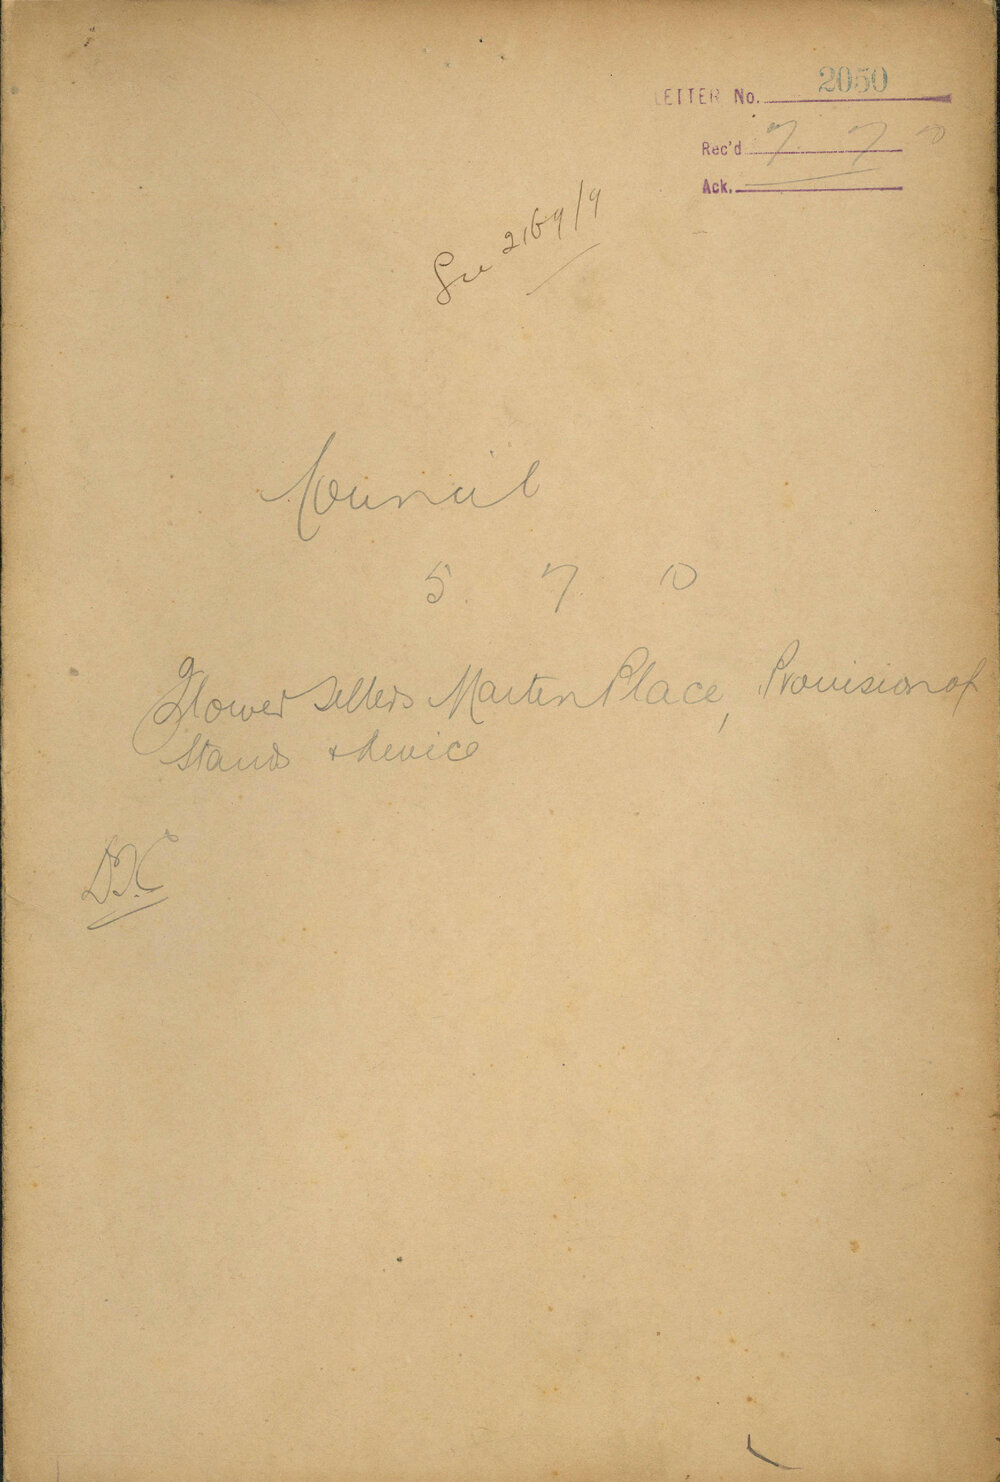 LETTER No. 2050
Rec'd 7 7 10
Ack.
See 2169/9
Council
5. 7. 10
Flower Sellers Martin Place, Provision of
Stands & device